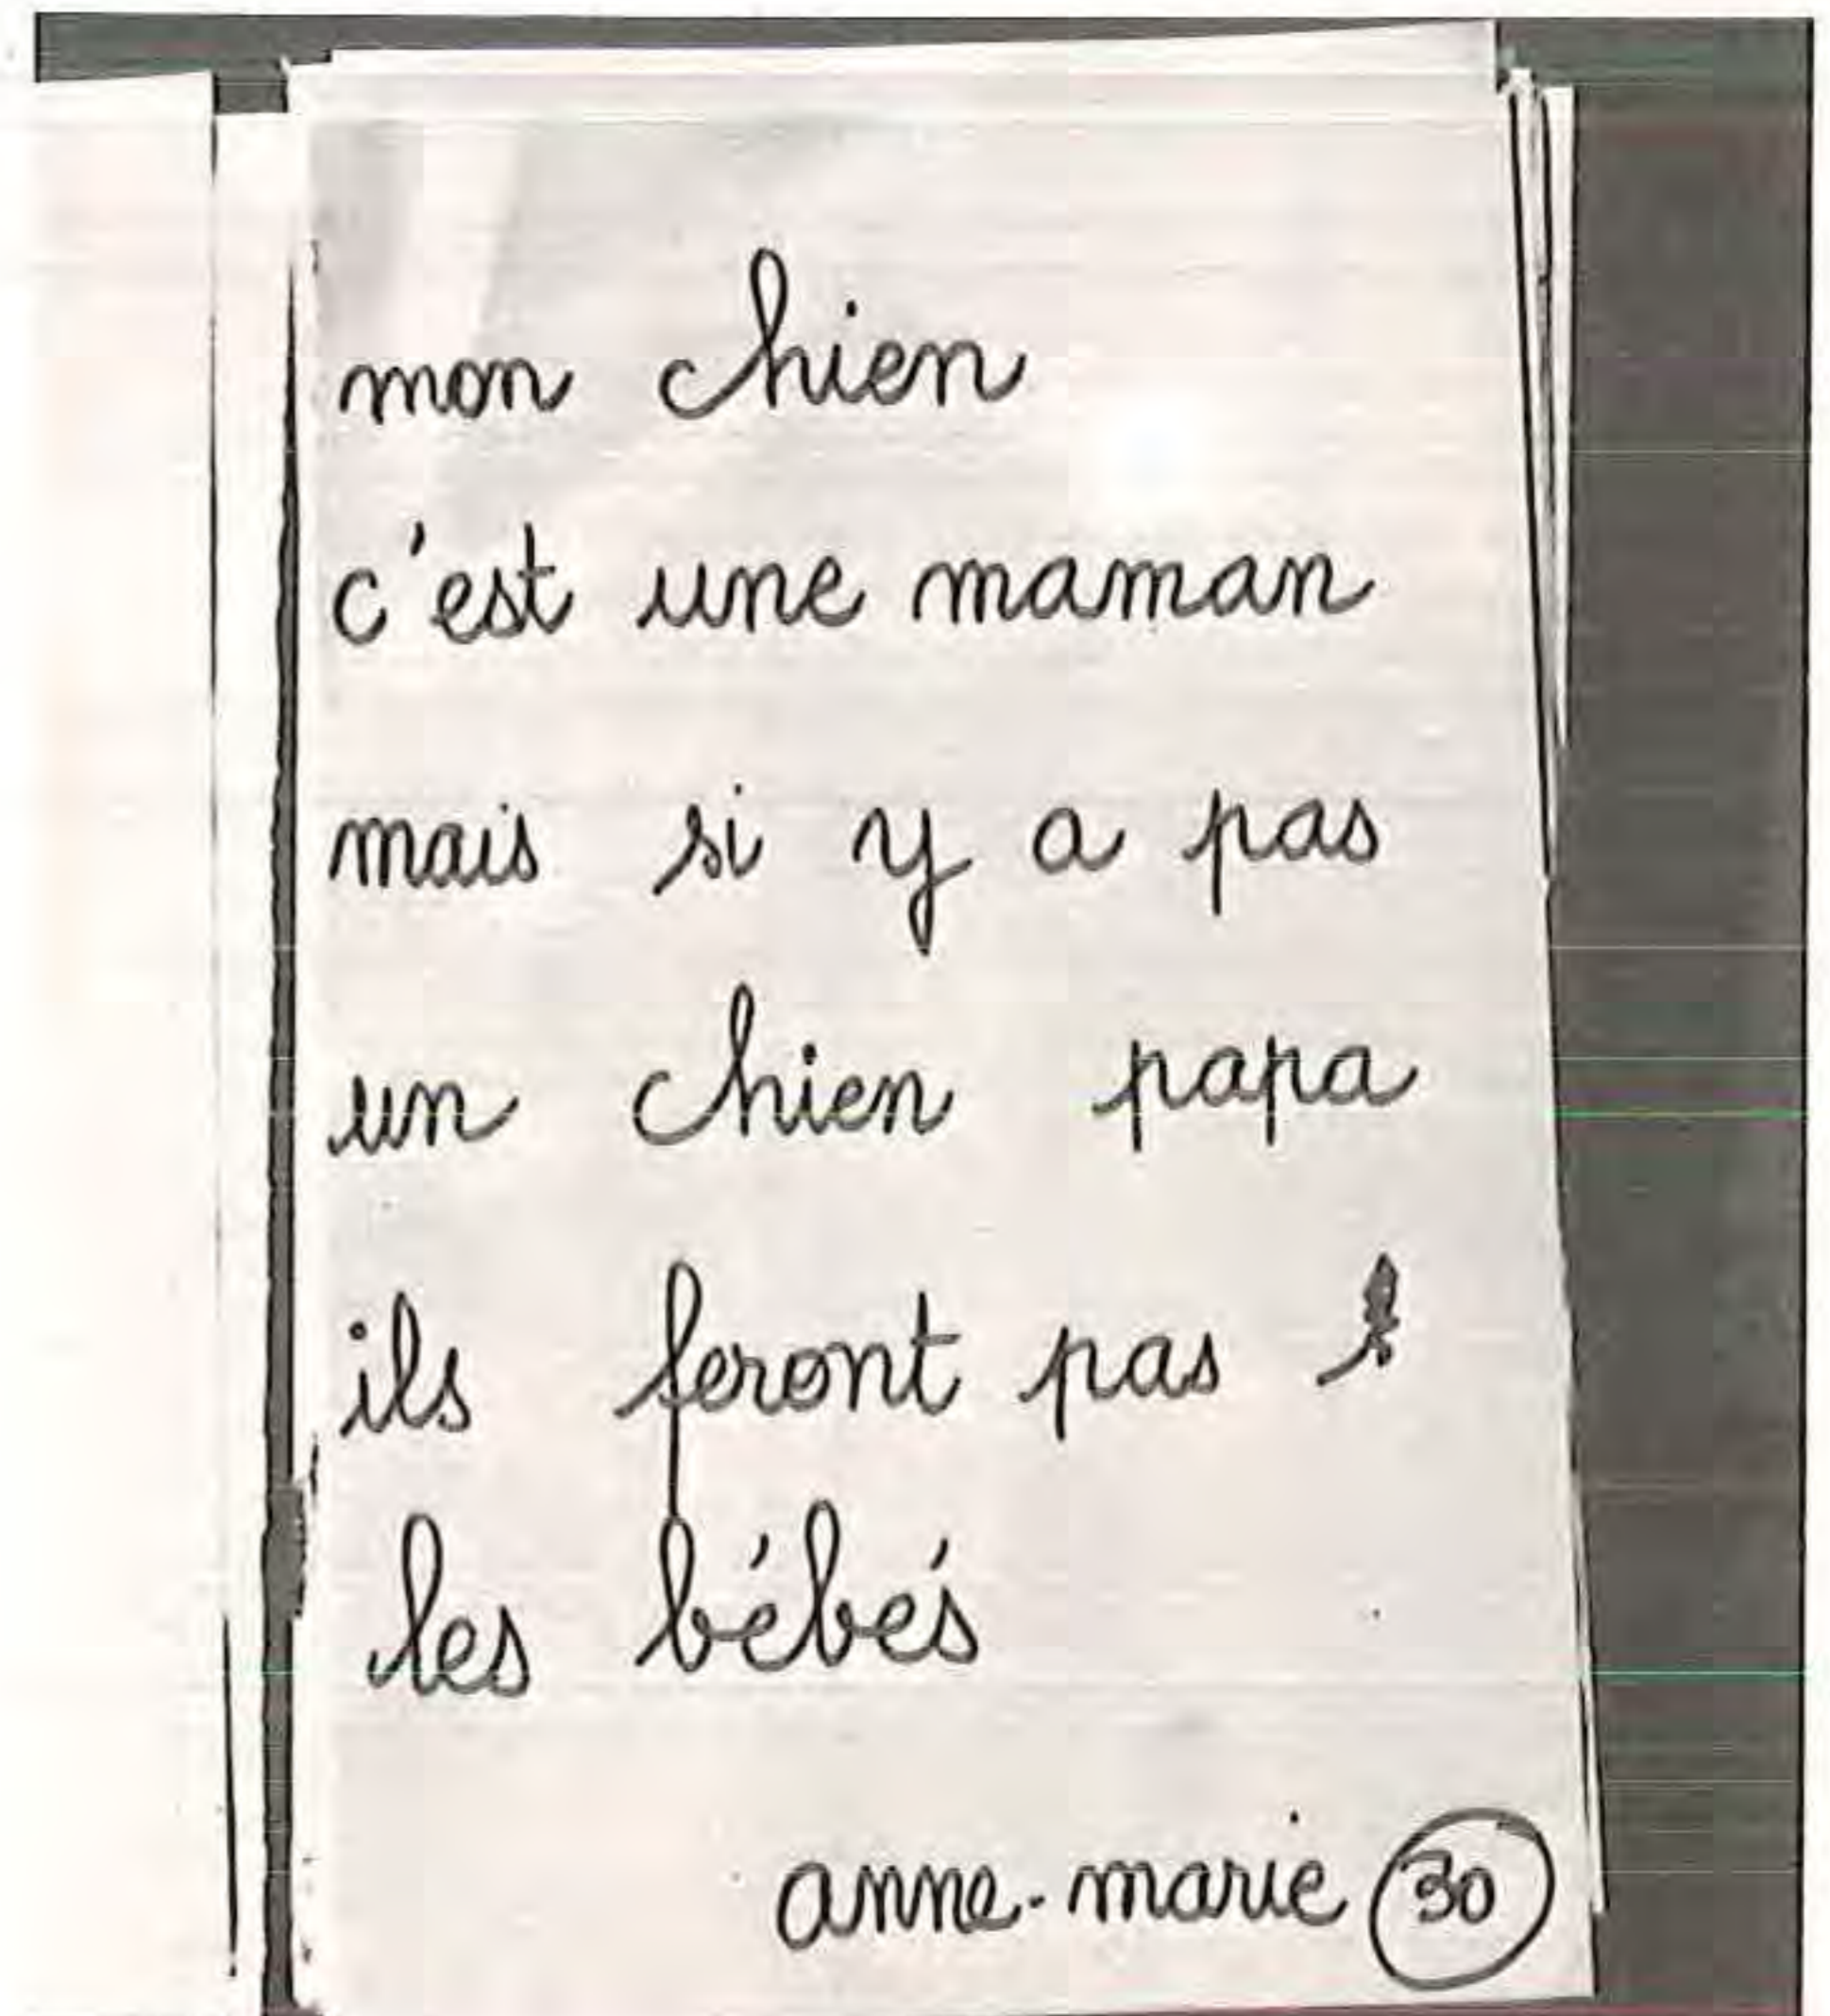 mon chien
c'est une maman
mais si y a pas
un chien papa
ils feront pas
les bébés
anne-marie 30